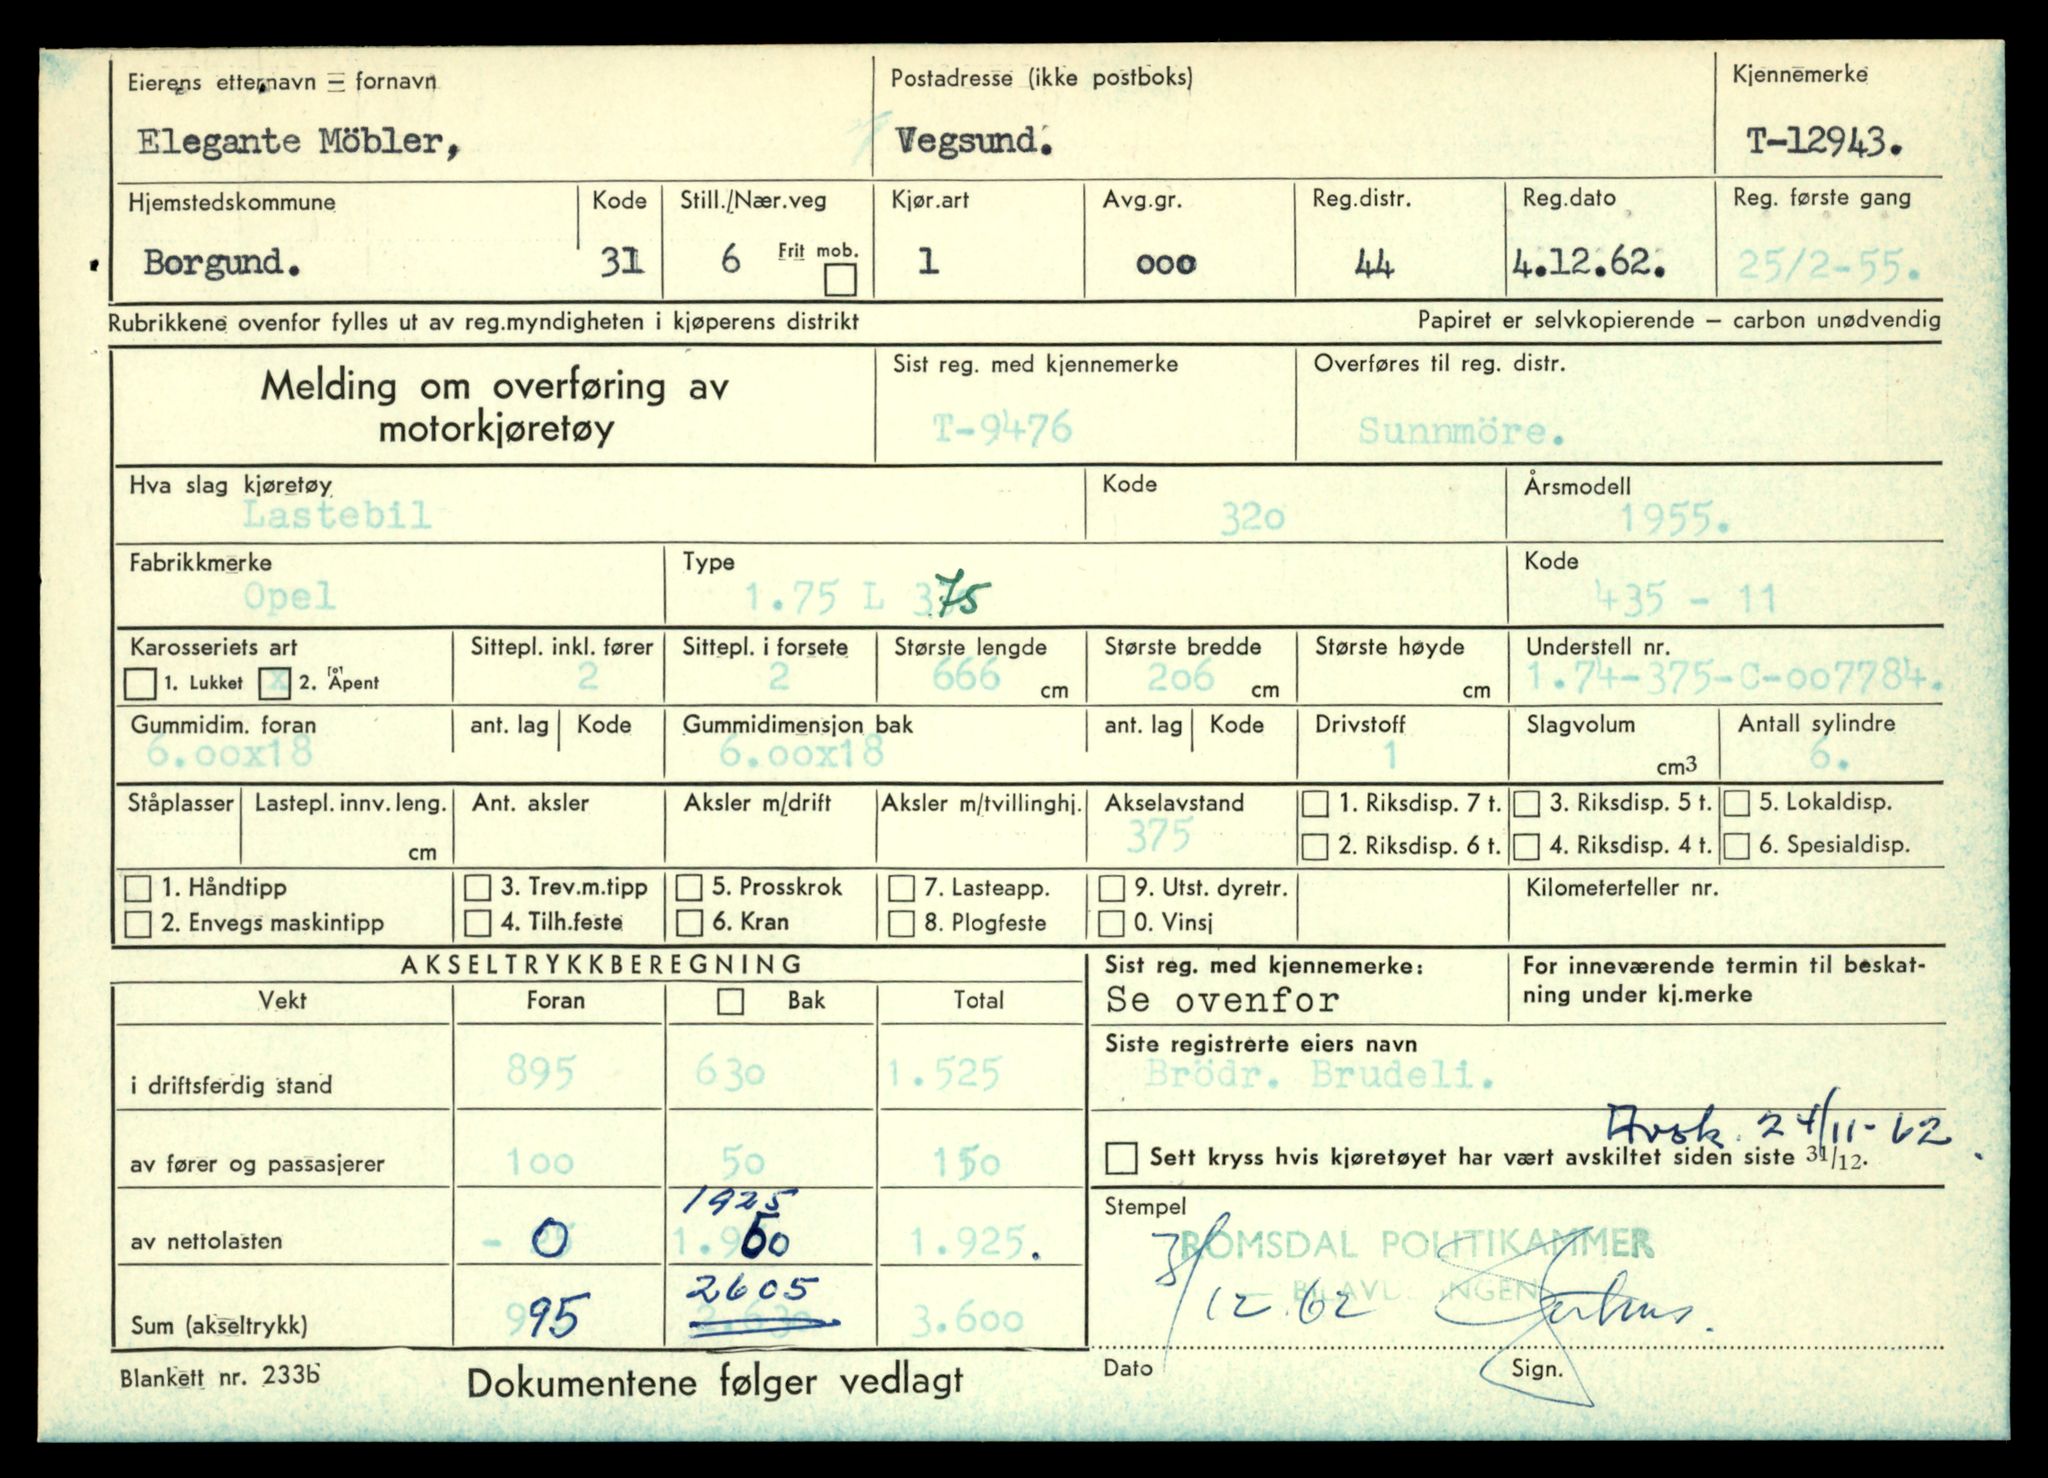 Eierens etternavn = fornavn Postadresse (ikke postboks) Kjennemerke
Elegante Möbler, Vegsund. T-12943.
Hjemstedskommune Kode Still./Nær.veg Kjør.art Avg.gr. Reg.distr. Reg.dato Reg. første gang
Borgund. 31 6 Frit mob. 1 ooo 44 4.12.62. 25/2-55.
Rubrikkene ovenfor fylles ut av reg.myndigheten i kjøperens distrikt Papiret er selvkopierende – carbon unødvendig
Melding om overføring av Sist reg. med kjennemerke Overføres til reg. distr.
motorkjøretøy T-9476 Sunnmöre.
Hva slag kjøretøy Kode Årsmodell
Lastebil 320 1955.
Fabrikkmerke Type Kode
Opel 1.75 L 375 435 - 11
Karosseriets art Sittepl. inkl. fører Sittepl. i forsete Største lengde Største bredde Største høyde Understell nr.
1. Lukket x 2. Åpent 2 2 666 cm 206 cm cm 1.74-375-C-007784.
Gummidim. foran ant. lag Kode Gummidimensjon bak ant. lag Kode Drivstoff Slagvolum Antall sylindre
6.oox18 6.oox18 1 cm3 6.
Ståplasser Lastepl. innv. leng. Ant. aksler Aksler m/drift Aksler m/tvillinghj. Akselavstand 1. Riksdisp. 7 t. 3. Riksdisp. 5 t. 5. Lokaldisp.
cm 375 2. Riksdisp. 6 t. 4. Riksdisp. 4 t. 6. Spesialdisp.
1. Håndtipp 3. Trev.m.tipp 5. Prosskrok 7. Lasteapp. 9. Utst. dyretr. Kilometerteller nr.
2. Envegs maskintipp 4. Tilh.feste 6. Kran 8. Plogfeste 0. Vinsj
AKSELTRYKKBEREGNING Sist reg. med kjennemerke: For inneværende termin til beskat-
Vekt Foran Bak Total Se ovenfor ning under kj.merke
Siste registrerte eiers navn
i driftsferdig stand 895 630 1.525 Brödr. Brudeli.
Avsk. 24/11-62
av fører og passasjerer 100 50 150 Sett kryss hvis kjøretøyet har vært avskiltet siden siste 31/12.
1925 Stempel
av nettolasten 0 1.950 1.925. ROMSDAL POLITIKAMMER
2605
Sum (akseltrykk) 995 2.630 3.600 3/12.62
Dato Sign.
Blankett nr. 233b Dokumentene følger vedlagt